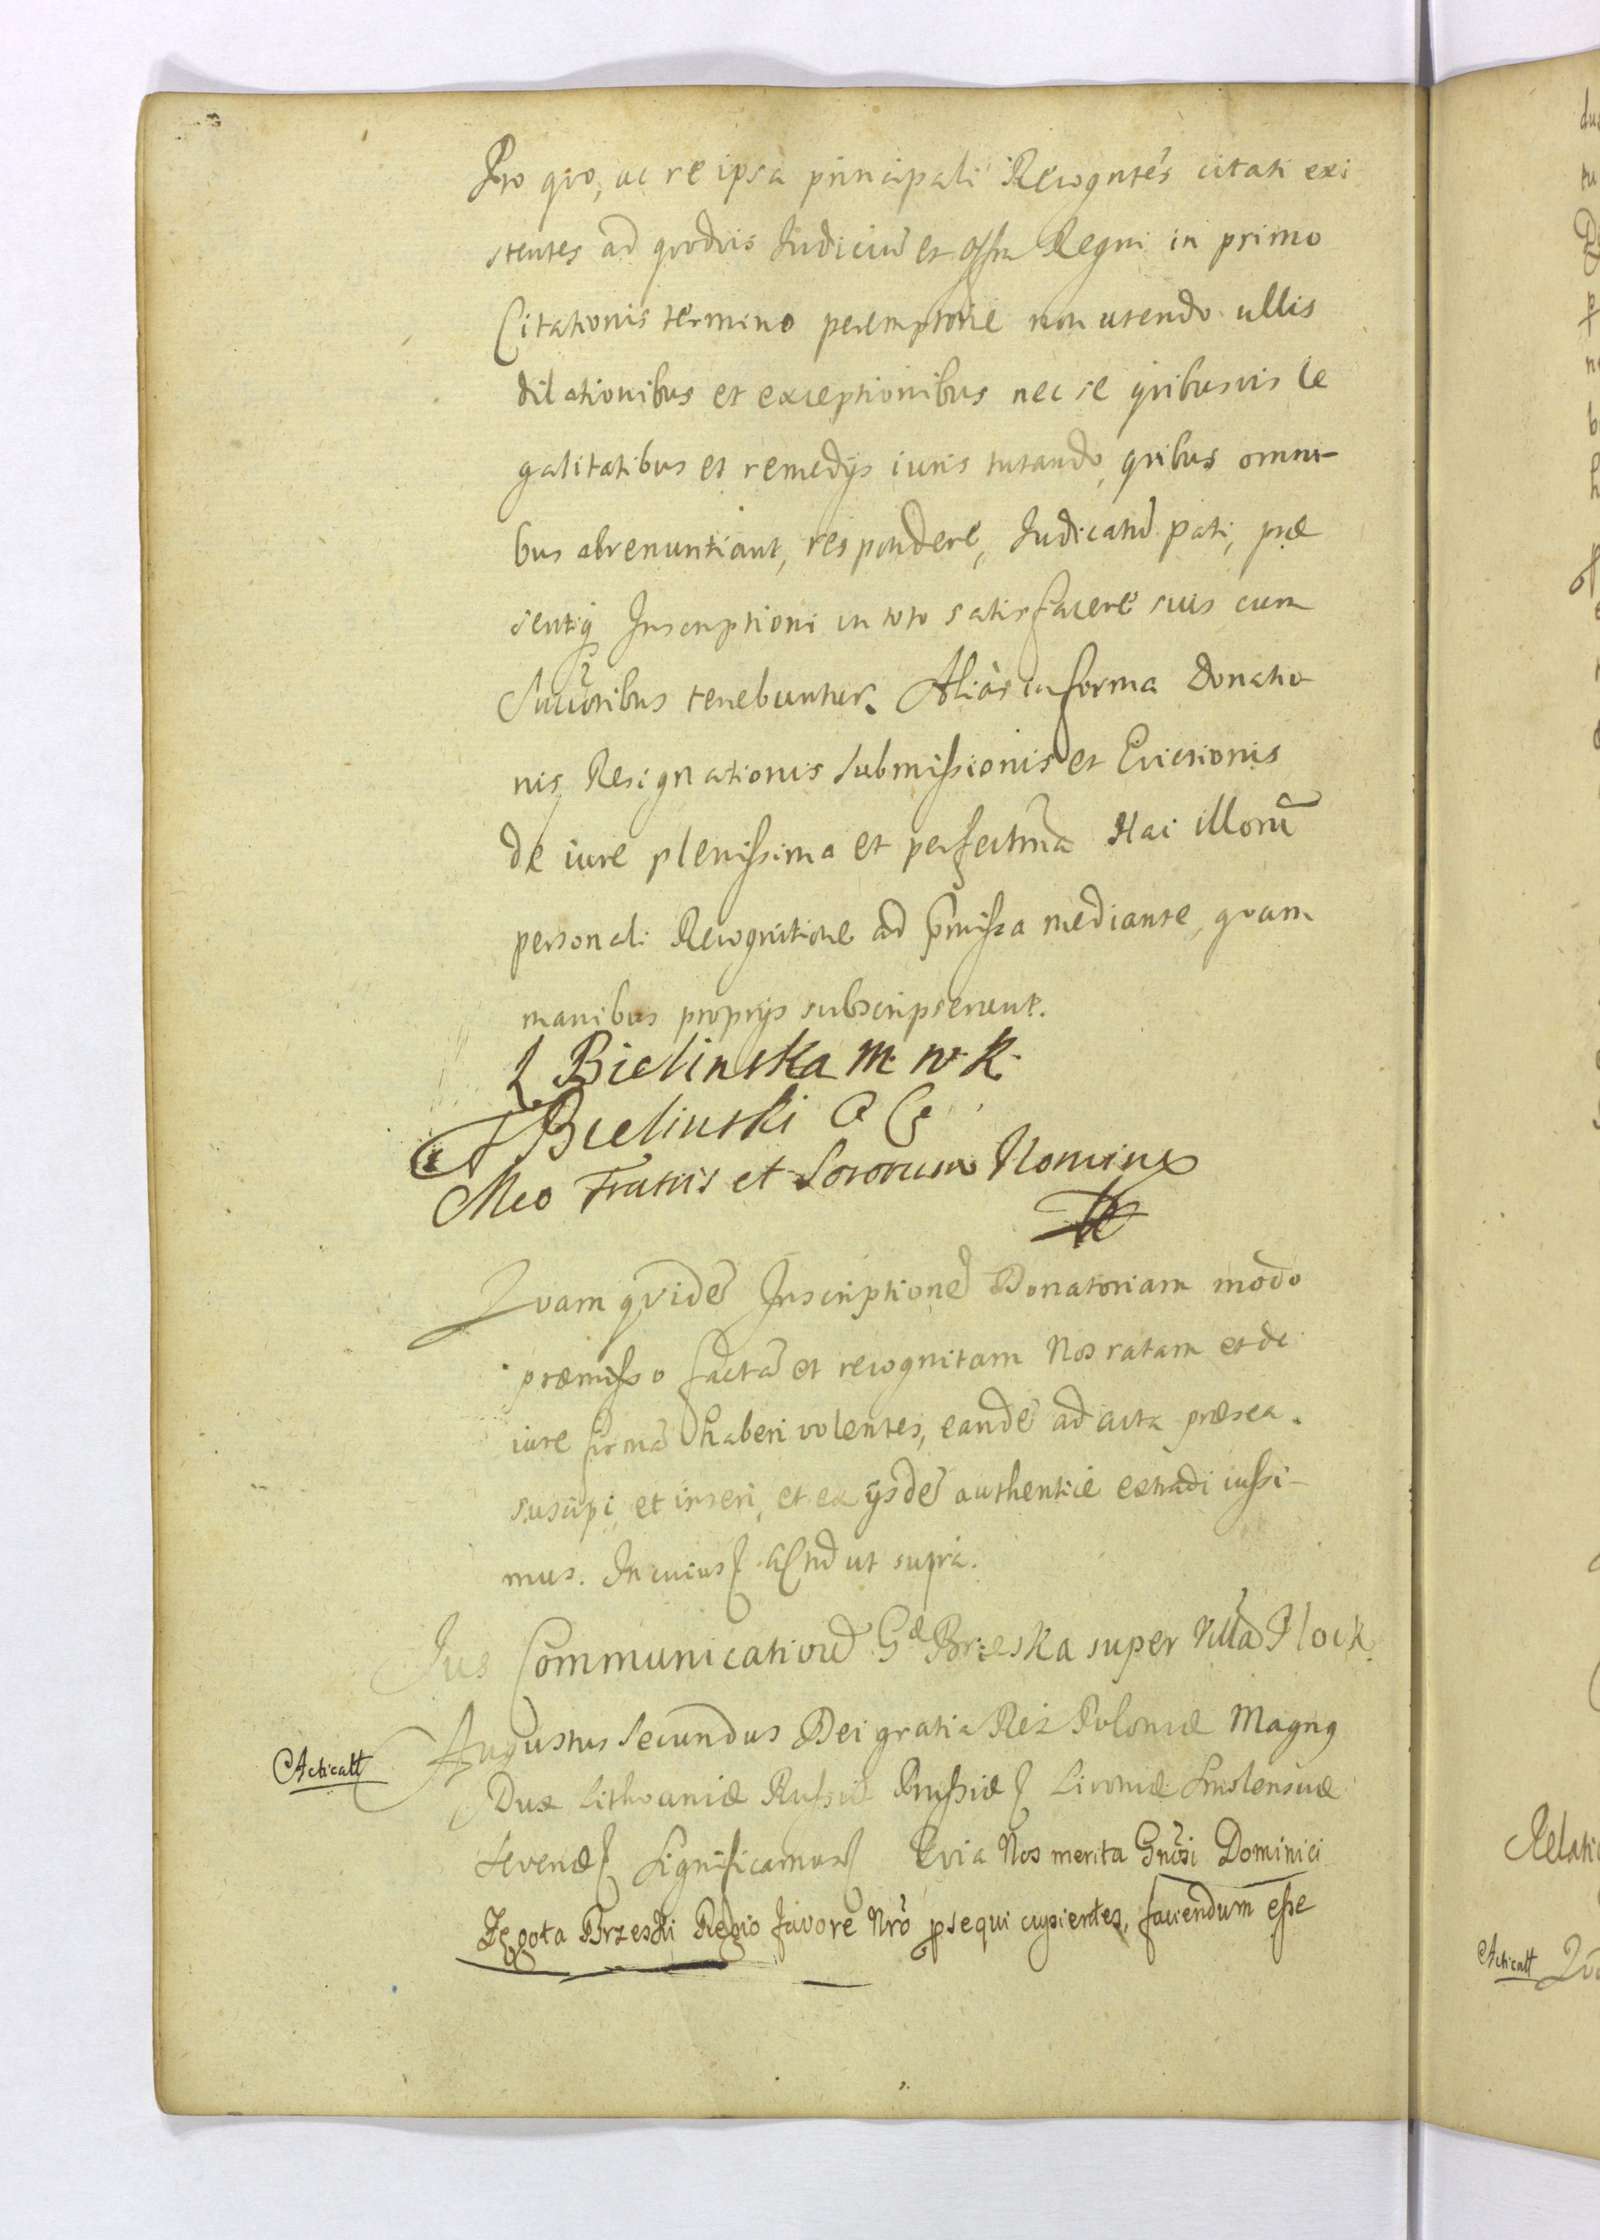 Pro quo, ac re ipsa principali Recognten̄s citati exi
stentes ad quodvis Judiciū et Offm Regni in primo
Citationis termino peremptorie non utendo ullis
dilationibus et exceptionibus nec se quibusvis le
galitatibus et remedijs iuris tutando, quibus omni-
bus abrenuntiant, respondere, Judicatū pati, præ
sentiq Inscriptioni in toto satisfacere suis cum
Succ̄oribus tenebuntur. Aliàs in forma Donatio
nis Resignationis Submissionis et Evictionis
de iure plenissima et perfectm̄a Hac illorū
personali Recognitione ad p̄missa mediante, quam
manibus proprijs subscripserunt.
L Bielinska M W K
Bielinski C C
Meo Fratris et Sororum Nomine
Quam quidē Inscriptionē Donatoriam modo
præmisso factā et recognitam Nos ratam et de
iure firmā haberi volentes, eandē ad acta præsea.
suscipi, et inseri, et ex ijsdē authentice extradi iussi-
mus. In cuius Actū ut supra.
Jus Communicativū Gæ Brzeska super Villā Plock
Augustus Secundus Dei gratia Rex Poloniæ Magnq
Acticatt
Dux Lithvaniæ Russiæ Prussiæ Livoniæ Smolensciæ
Seveniæ Significamus Quia Nos merita Gn̄osi Dominici
Zegota Brzeski Regio favore Nrō p̱sequi cupientes, faciendum esse
Relati
Acticatt